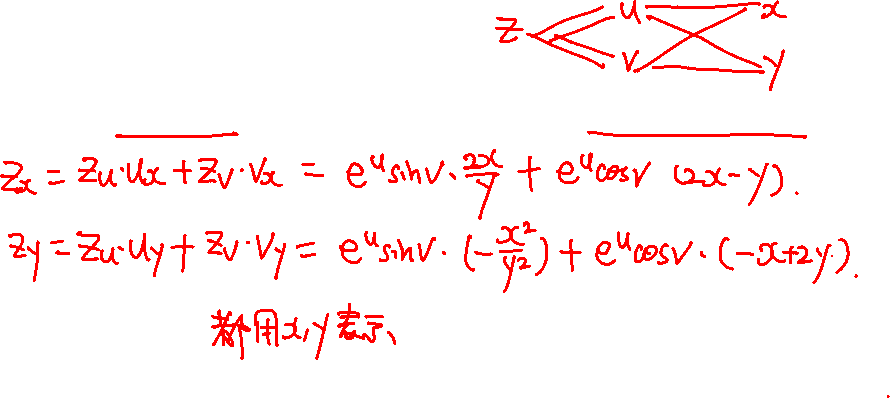 z u x
v y
z_x = z_u·u_x + z_v·v_x = e^u sinv · 2x/y + e^u cosv (2x-y).
z_y = z_u·u_y + z_v·v_y = e^u sinv · (-x²/y²) + e^u cosv · (-x+2y).
都用x,y表示、